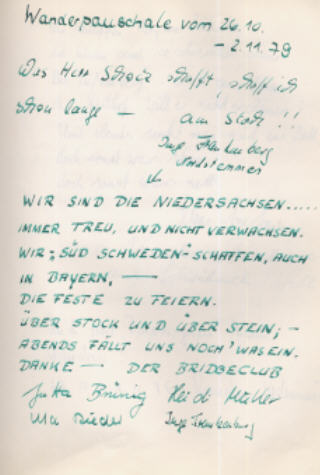 Wanderpauschale vom 26.10.
– 2.11.79
Was Herr Scholz schafft, schaff ich
schon lange – am Stock!!
Inge Frankenberg
Nordstemmen
WIR SIND DIE NIEDERSACHSEN.....
IMMER TREU, UND NICHT VERWACHSEN.
WIR "SÜD SCHWEDEN" SCHAFFEN, AUCH
IN BAYERN, —
DIE FESTE ZU FEIERN.
ÜBER STOCK UND ÜBER STEIN, –
ABENDS FÄLLT UNS NOCH WAS EIN.
DANKE — DER BRIDGECLUB
Jutta Brünig Heidi Müller